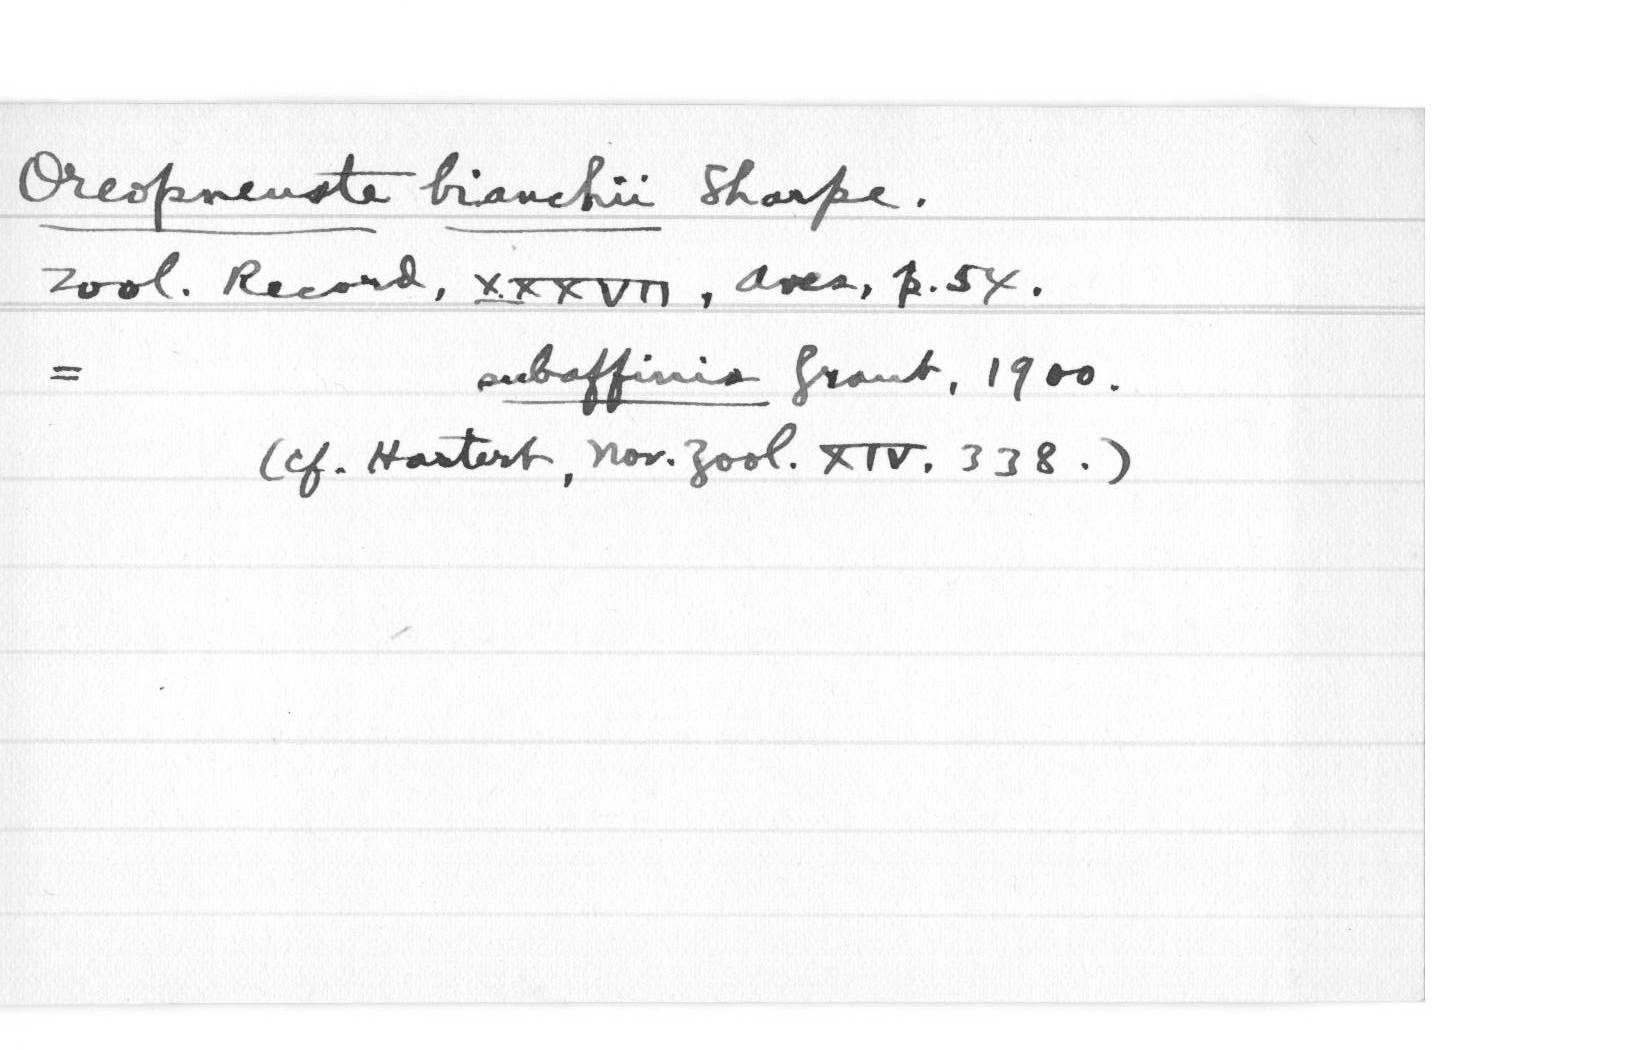 Oreopneuste bianchii Sharpe.
Zool. Record, XXXVII, Aves, p. 54.
= subaffinis Grant, 1900.
(cf. Hartert, Nov. Zool. XIV. 338.)